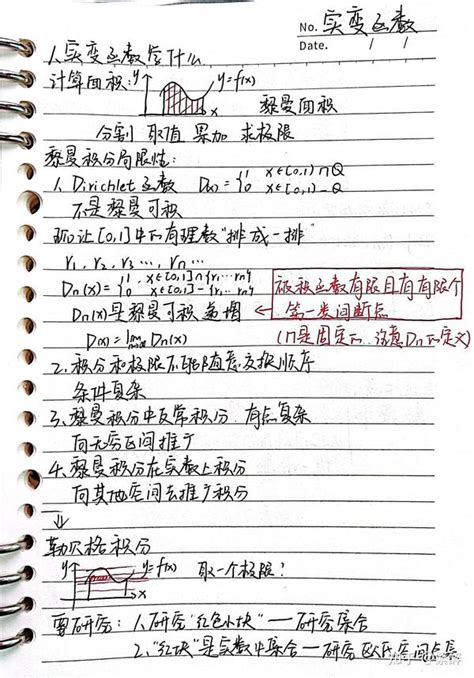 No. 实变函数
Date. / /
1、实变函数学什么
计算面积: y y=f(x) x 黎曼面积
分割 取值 累加 求极限
黎曼积分局限性:
1、Dirichlet函数 D(x)={1 x∈[0,1]∩Q
0 x∈[0,1]-Q
不是黎曼可积
让[0,1]中的有理数"排成一排"
r₁, r₂, r₃ …, rₙ …
Dₙ(x)={1, x∈[0,1]∩{r₁…rₙ}
0, x∈[0,1]-{r₁…rₙ}
Dₙ(x)是黎曼可积 递增 ←
被积函数有限且有有限个
第一类间断点
(n是固定的, 注意Dₙ的定义)
D(x)=lim Dₙ(x)
2、积分和极限不能随意交换顺序
条件复杂
3、黎曼积分中反常积分 有点复杂
向无穷区间推广
4、黎曼积分在实数上积分
向其他空间去推广积分
↓
勒贝格积分
y y=f(x) x 取一个极限?
需研究: 1、研究"红色小块"——研究集合
2、"红块"是实数中集合—研究欧氏空间点集
知乎